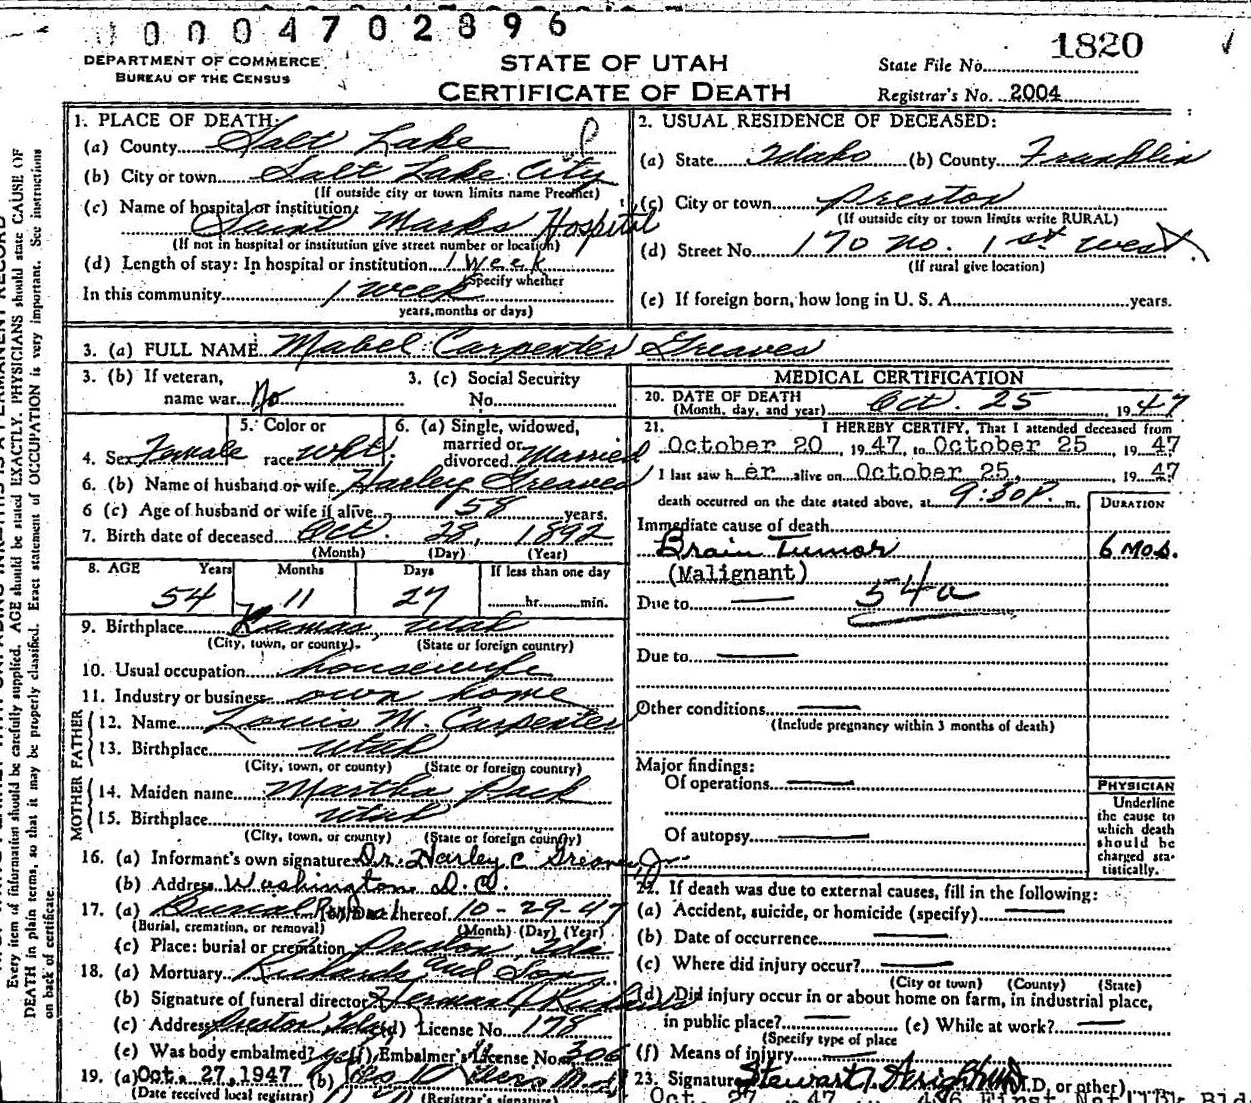 0 0 0 4 7 0 2 8 9 6
1820
DEPARTMENT OF COMMERCE
BUREAU OF THE CENSUS
STATE OF UTAH
CERTIFICATE OF DEATH
State File No.
Registrar's No. 2004
1. PLACE OF DEATH:
(a) County Salt Lake
(b) City or town Salt Lake City
(If outside city or town limits name Precinct)
(c) Name of hospital or institution:
Saint Marks Hospital
(If not in hospital or institution give street number or location)
(d) Length of stay: In hospital or institution 1 Week
Specify whether
In this community 1 week
years, months or days)
2. USUAL RESIDENCE OF DECEASED:
(a) State Idaho (b) County Franklin
(c) City or town Preston
(If outside city or town limits write RURAL)
(d) Street No. 170 No. 1st West
(If rural give location)
(e) If foreign born, how long in U. S. A. years.
3. (a) FULL NAME Mabel Carpenter Greaves
3. (b) If veteran, name war No
3. (c) Social Security No.
4. Sex Female
5. Color or race wht.
6. (a) Single, widowed, married or divorced Married
6. (b) Name of husband or wife Harley Greaves
6 (c) Age of husband or wife if alive 58 years.
7. Birth date of deceased Oct. 28, 1892
(Month) (Day) (Year)
8. AGE Years Months Days If less than one day
54 11 27 hr. min.
9. Birthplace Kamas, Utah
(City, town, or county) (State or foreign country)
10. Usual occupation housewife
11. Industry or business own home
FATHER
12. Name Louis M. Carpenter
13. Birthplace Utah
(City, town, or county) (State or foreign country)
MOTHER
14. Maiden name Martha Pack
15. Birthplace Utah
(City, town, or county) (State or foreign country)
16. (a) Informant's own signature Dr. Harley C Greaves, Jr.
(b) Address Washington D.C.
17. (a) Burial (b) Date thereof 10-29-47
(Burial, cremation, or removal) (Month) (Day) (Year)
(c) Place: burial or cremation Preston Ida
18. (a) Mortuary Richards and Son
(b) Signature of funeral director
(c) Address Preston, Idaho (d) License No. 178
(e) Was body embalmed? yes (f) Embalmer's License No. 306
19. (a) Oct. 27, 1947 (b)
(Date received local registrar) (Registrar's signature)
MEDICAL CERTIFICATION
20. DATE OF DEATH
(Month, day, and year) Oct. 25, 1947
21. I HEREBY CERTIFY, That I attended deceased from
October 20, 1947, to October 25, 1947
I last saw her alive on October 25, 1947
death occurred on the date stated above, at 9:30P. m.
DURATION
Immediate cause of death
Brain Tumor 6 Mos.
(Malignant)
54a
Due to
Due to
Other conditions
(Include pregnancy within 3 months of death)
Major findings:
Of operations
Of autopsy
PHYSICIAN
Underline
the cause to
which death
should be
charged sta-
tistically.
22. If death was due to external causes, fill in the following:
(a) Accident, suicide, or homicide (specify)
(b) Date of occurrence
(c) Where did injury occur?
(City or town) (County) (State)
(d) Did injury occur in or about home on farm, in industrial place,
in public place? (e) While at work?
(Specify type of place
(f) Means of injury
23. Signature (M.D. or other)
Oct. 27 1947 First Nat'l Bk Bld
Every item of information should be carefully supplied. AGE should be stated EXACTLY. PHYSICIANS should state CAUSE OF
DEATH in plain terms, so that it may be properly classified. Exact statement of OCCUPATION is very important. See instructions
on back of certificate.